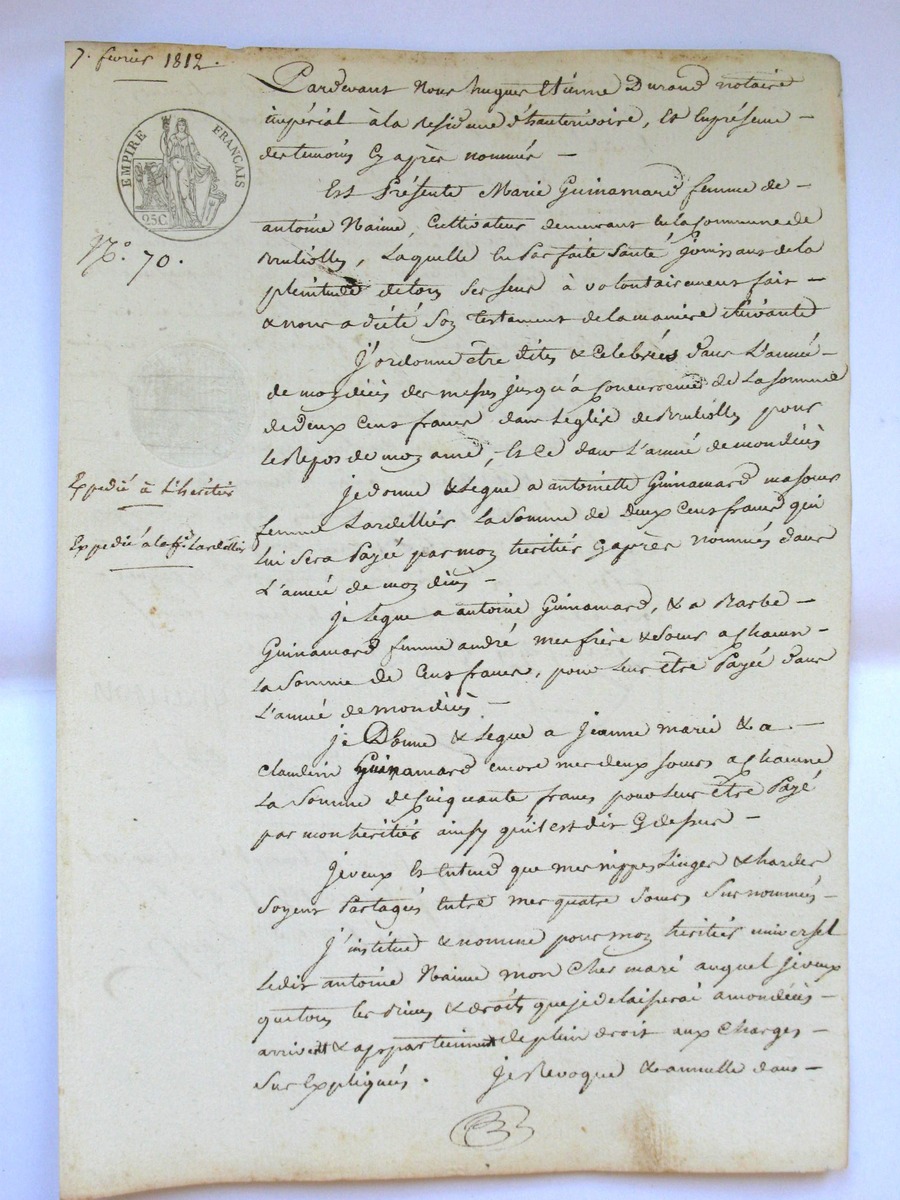 7. fevrier 1812.
EMPIRE FRANÇAIS
25C
N.° 70.
Expedié à L'heritier
Expedié à la ff.e Lardellier
Pardevant Nous hugues Etienne Durand notaire
impérial à la residence d'hauterivoire, Et En présence
des temoins Cy après nommés
Est Présente Marie Guinamard femme de
antoine Naime, Cultivateur demeurant En la Commune de
Brulliolles, Laquelle En Parfaite Santé jouissant de la
plenitude de tous Ses Sens à volontairement fait
& nous a dicté Son testament de la maniere Suivante
J'ordonne être dites & Celebrées dans L'année
de mon décès des messes jusqu'à Concurrence de La Somme
de Deux Cens francs dans L'eglise de Brulliolles pour
Le Repos de mon ame, Et Ce dans L'année de mon décès
je donne & Legue a antoinette Guinamard ma soeur
femme Lardellier La Somme de Deux Cens francs qui
Lui Sera Payée par mon heritier Cy après nommés dans
L'année de mon décès
je Legue a antoine Guinamard, & a Barbe
Guinamard femme andré mes frère & Soeur a Chacun
La Somme de Cens francs, pour Leur être Payée dans
L'année de mon décès
je Donne & Legue a jeanne marie & a
claudine Guinamard encore mes deux Soeurs a Chacune
La Somme de Cinquante francs pour Leur être Payé
par mon heritier ainsy qu'il est dit Cy dessus
je veux Et Entend que mes nippes Linges & hardes
Soyent Partagés Entre mes quatre Soeurs Sus nommées
J'institue & nomme pour mon heritier universel
Ledit antoine Naime mon Cher mari auquel je veux
que tous les Biens & droits que je delaisserai a mon décès
arrivent & appartiennent de plein droit aux Charges
Sus Expliqués. Je Revoque & annulle dans